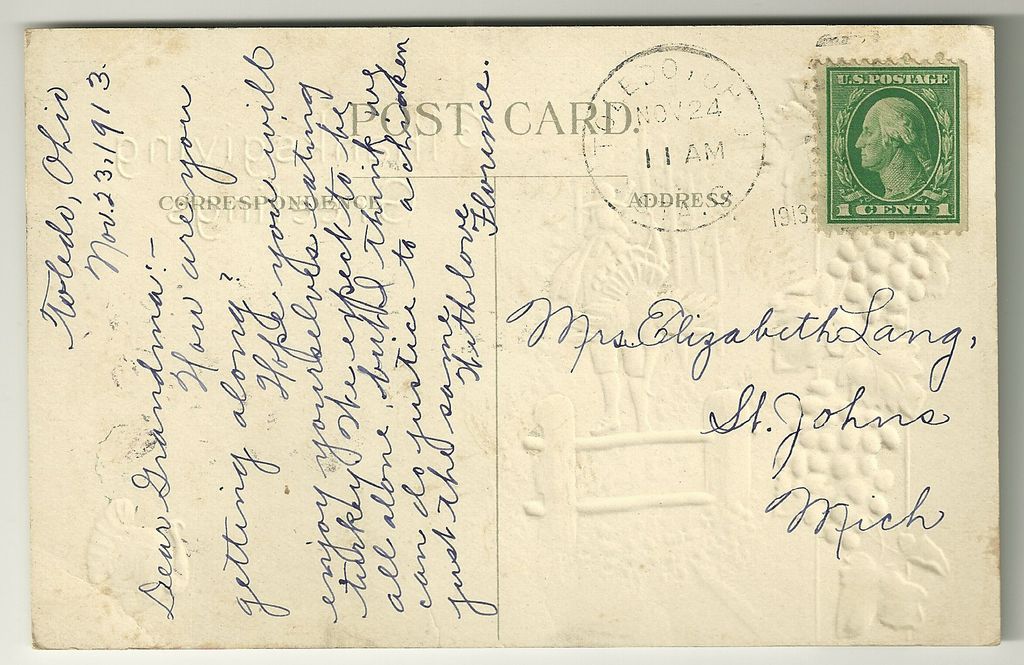 POST CARD.
CORRESPONDENCE
ADDRESS
TOLEDO, OHIO
NOV 24
11 AM
1913
U.S. POSTAGE
1 CENT 1
Toledo, Ohio
Nov. 23, 1913.
Dear Grandma:-
How are you
getting along?
Hope you will
enjoy yourselves eating
turkey. We expect to be
all alone but I think we
can do justice to a chicken
just the same.
With love
Florence.
Mrs. Elizabeth Lang,
St. Johns
Mich
Thanksgiving
Greetings